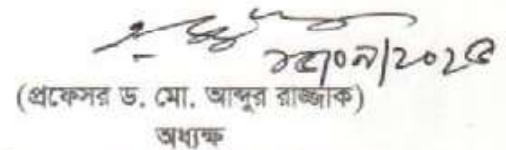 ১৫/০৯/২০২৫
(প্রফেসর ড. মো. আব্দুর রাজ্জাক)
অধ্যক্ষ